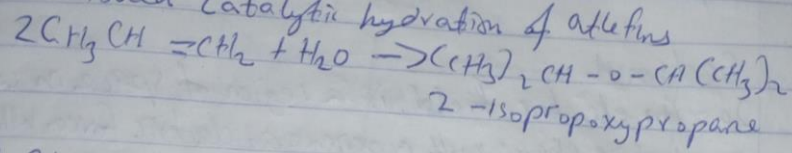 Catalytic hydration of atlefins
2CH3CH =CH2 + H2O —>(CH3)2 CH - O - CH (CH3)2
2 -isopropoxypropane